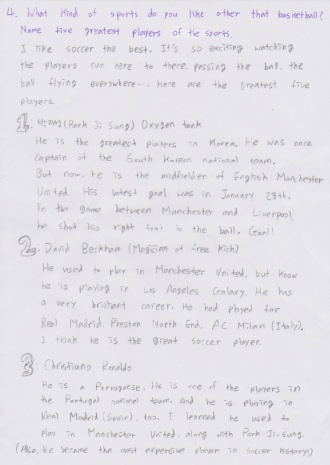 4. What kind of sports do you like other that basketball?
Name five greatest players of the sports.
I like soccer the best. It's so exciting watching
the players run here to there, passing the ball, the
ball flying everywhere... Here are the greatest five
players.
1. 박지성(Park Ji Sung) Oxygen tank
He is the greatest players in Korea. He was once
captain of the South Korean national team.
But now, he is the midfielder of English Manchester
United. His latest goal was in January 28th.
In the game between Manchester and Liverpool,
he shot his right foot to the ball. Goal!
2. David Beckham (Magician of free kick)
He used to play in Manchester United, but know
he is playing in Los Angeles Galaxy. He has
a very brilliant career. He had played for
Real Madrid, Preston North End, AC Milan (Italy).
I think he is the great soccer player.
3. Christiano Ronaldo
He is a Portuguese. He is one of the players in
the Portugal national team. And he is playing in
Real Madrid (Spain), too. I learned he used to
play in Manchester United, along with Park Ji-Sung.
(Also, he became the most expensive player in soccer history!)